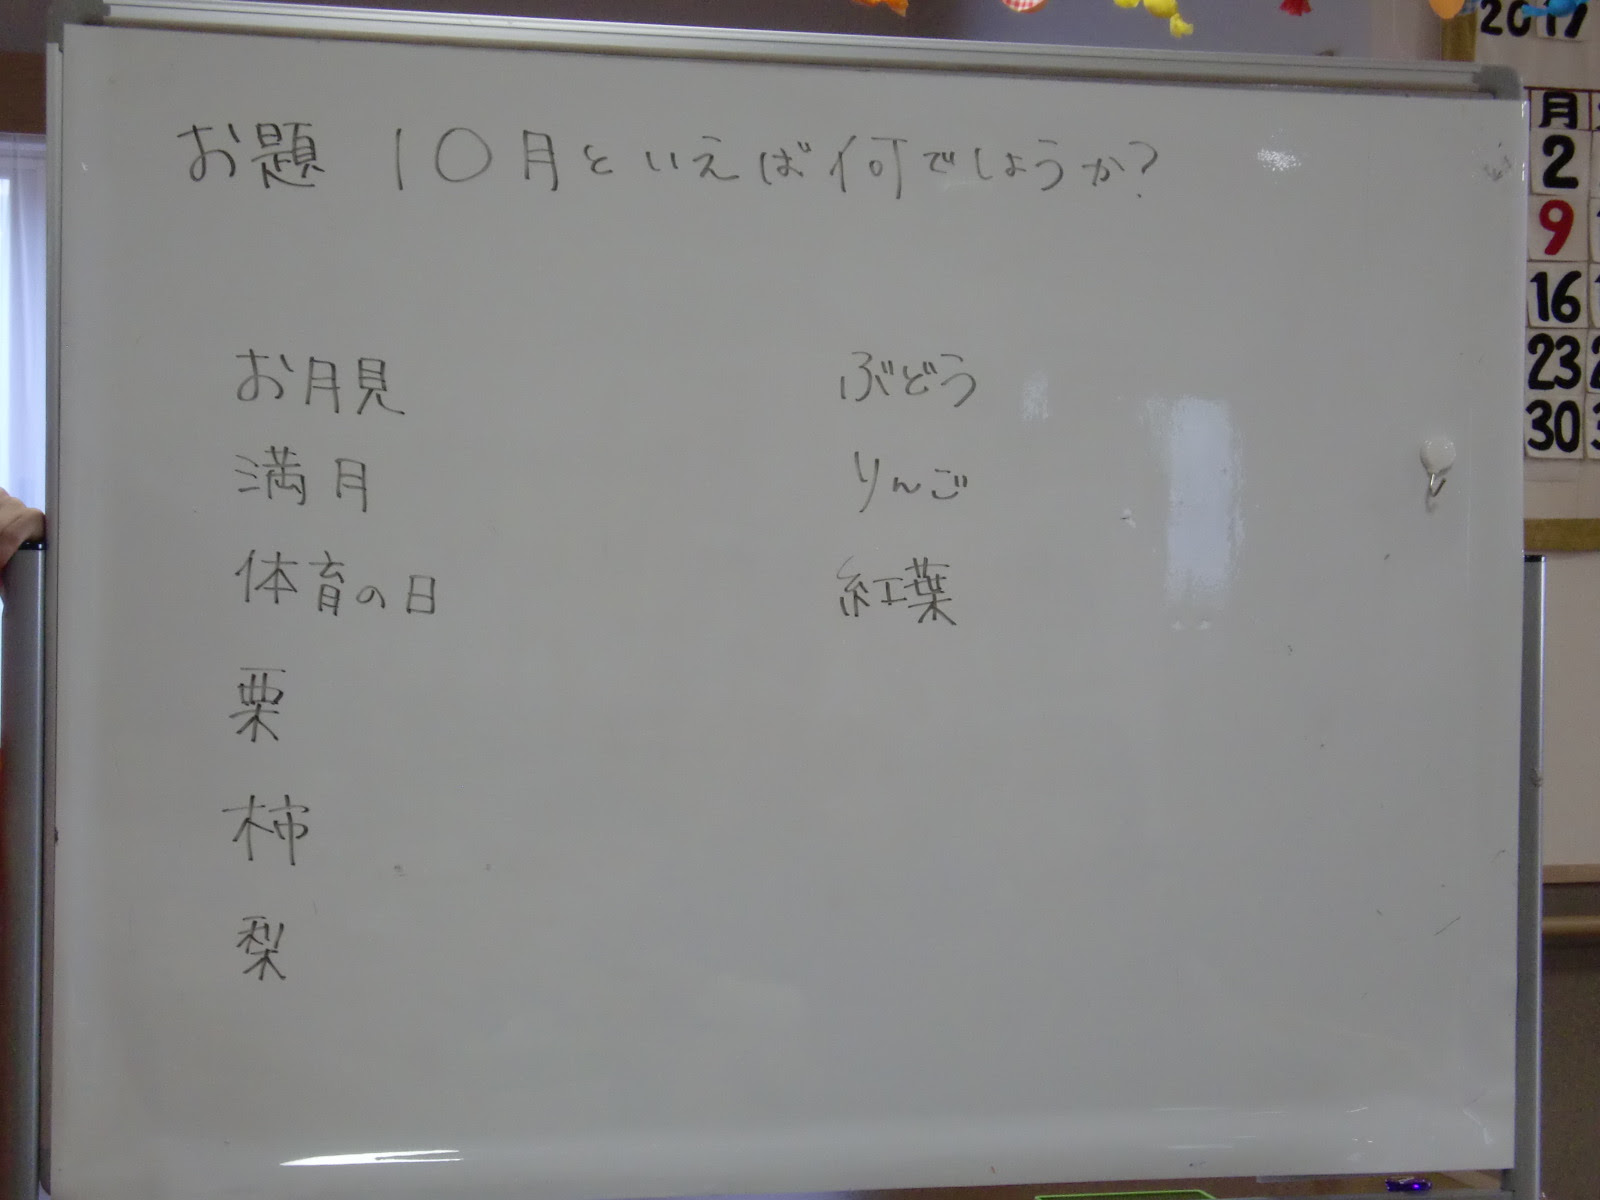 お題 10月といえば何でしょうか?
お月見
満月
体育の日
栗
柿
梨
ぶどう
りんご
紅葉
2017
月
2
9
16
23
30